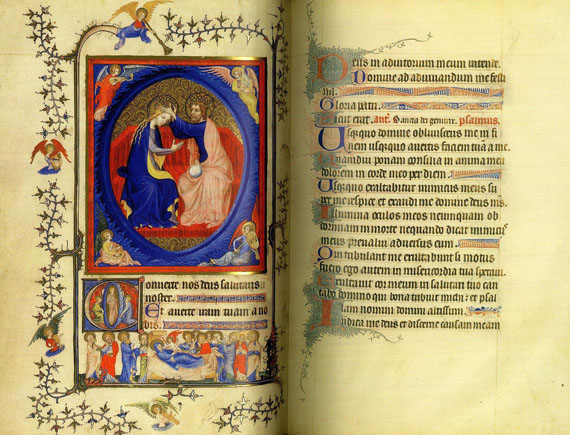 Converte nos deus salutaris
noster.
Et averte iram tuam a no
bis.
Deus in adiutorium meum intende.
Domine ad adiuvandum me festi
na.
Gloria patri.
Sicut erat. ant. Sancta dei genitrix. psalmus.
Usquequo domine oblivisceris me in fi
nem usquequo avertis faciem tuam a me.
Quamdiu ponam consilia in anima mea
dolorem in corde meo per diem.
Usquequo exaltabitur inimicus meus su
per me respice et exaudi me domine deus meus.
Illumina oculos meos ne umquam ob
dormiam in morte nequando dicat inimicus
meus prevalui adversus eum.
Qui tribulant me exultabunt si motus
fuero ego autem in misericordia tua speravi.
Exultabit cor meum in salutari tuo can
tabo domino qui bona tribuit michi et psal
lam nomini domini altissimi.
Iudica me deus et discerne causam meam